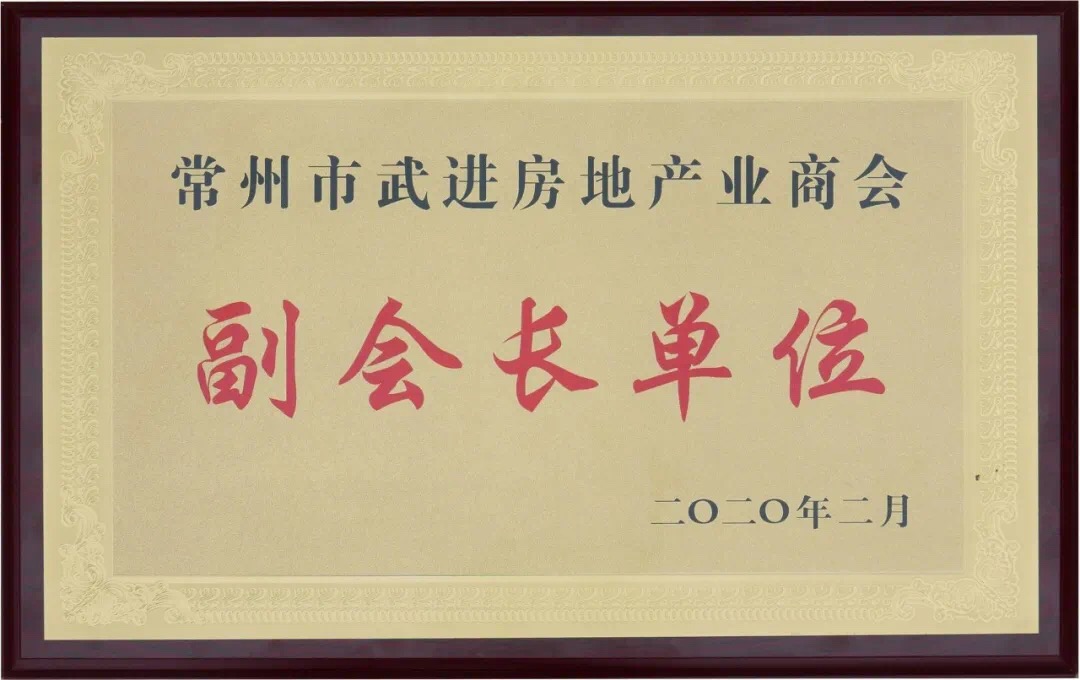 常州市武进房地产业商会
副会长单位
二〇二〇年二月